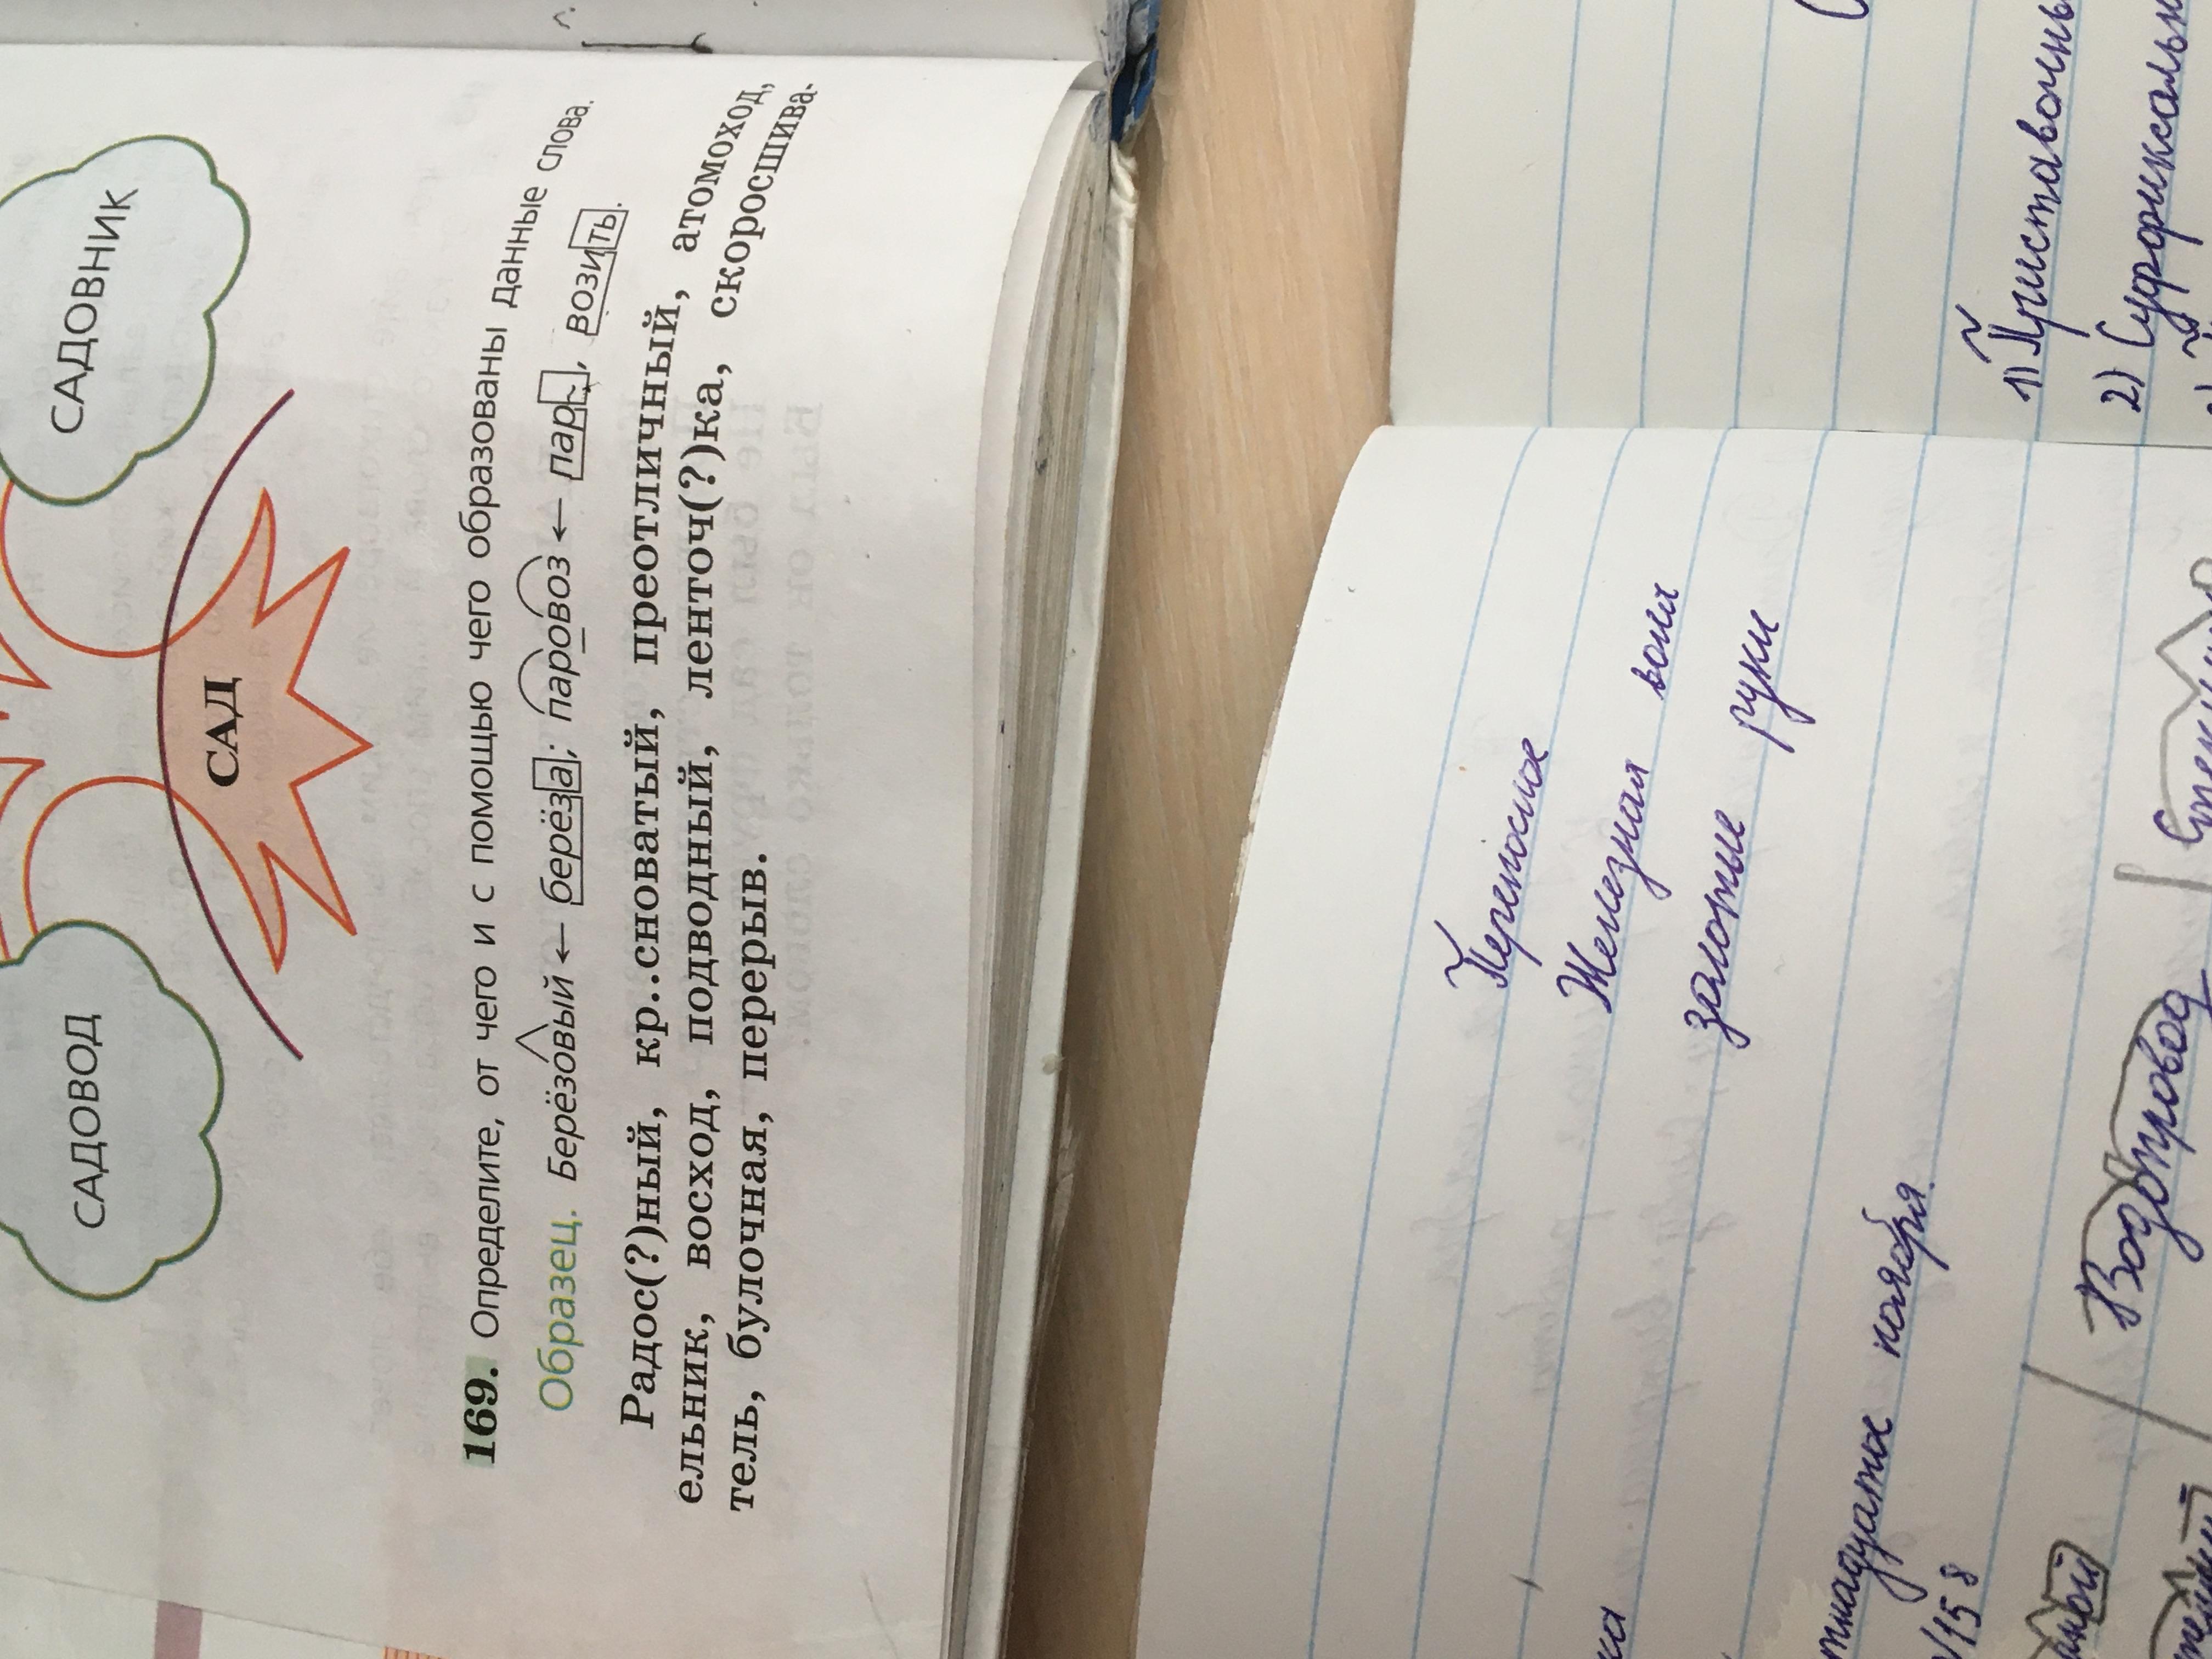 САДОВОД
САД
САДОВНИК
169. Определите, от чего и с помощью чего образованы данные слова.
Образец. Берёзовый ← берёза; паровоз ← пар, возить.
Радос(?)ный, кр..сноватый, преотличный, атомоход,
ельник, восход, подводный, ленточ(?)ка, скоросшива-
тель, булочная, перерыв.
Переносное
Железная воля
золотые руки
ноября.
Водопровод
1) Приставочны
2) Суффиксальн